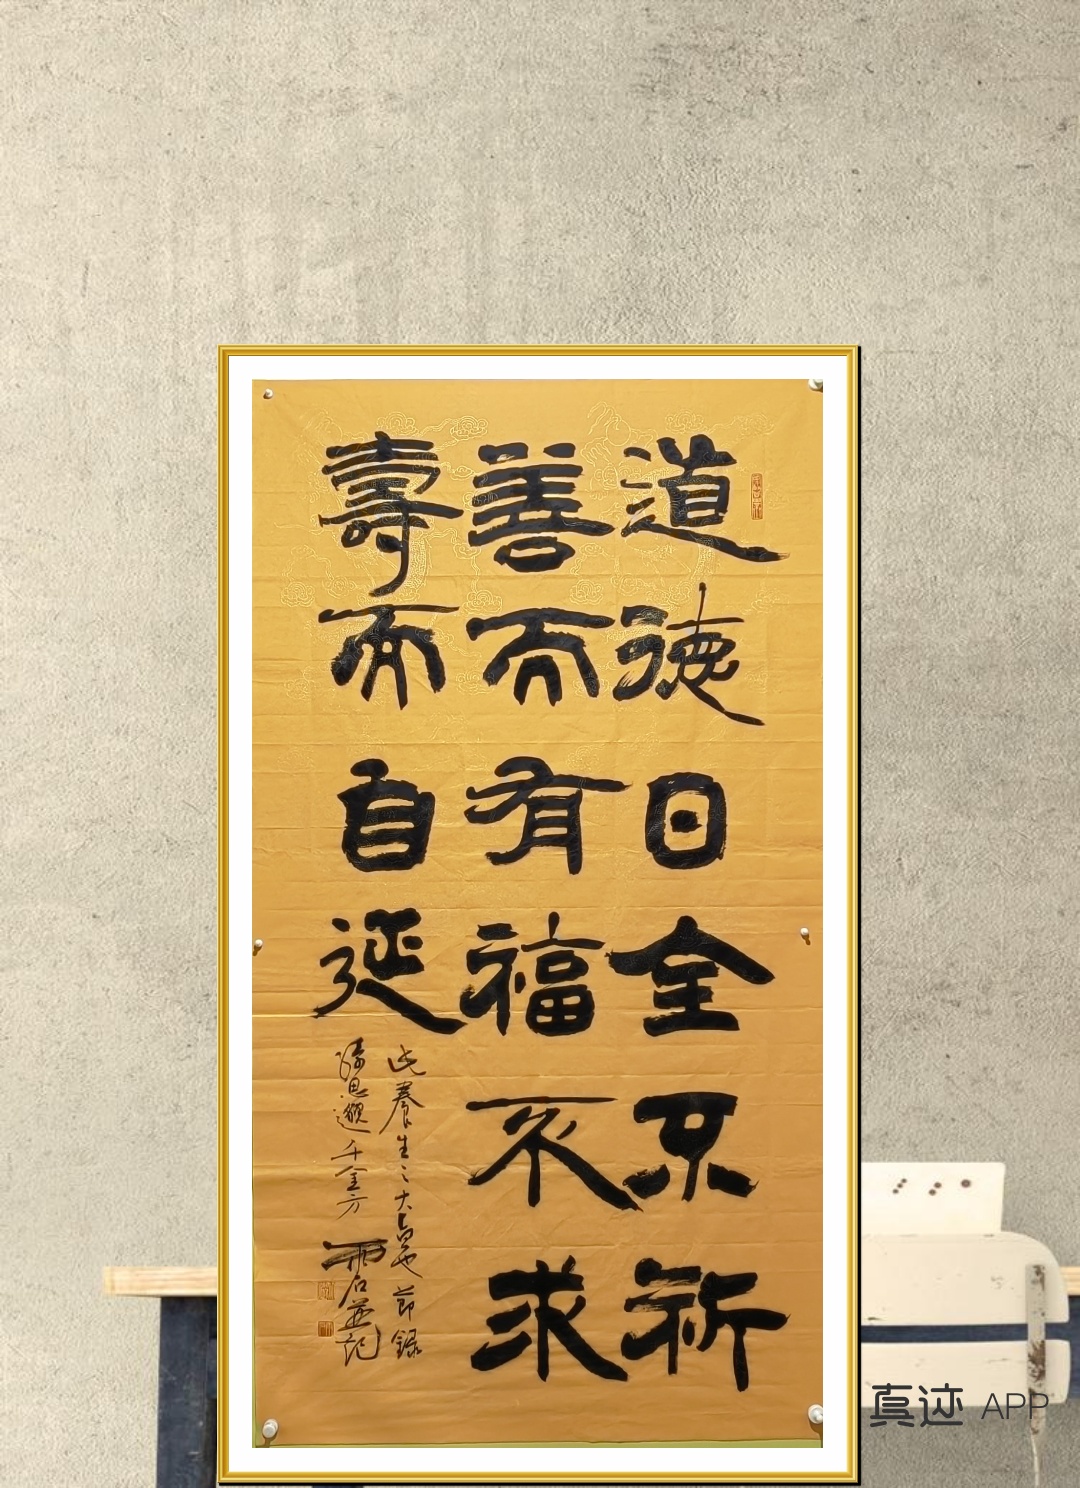 道德日全不祈
善而有福不求
壽而自延
此養生之大旨也節錄
孫思邈千金方
雨石並記
真迹 APP